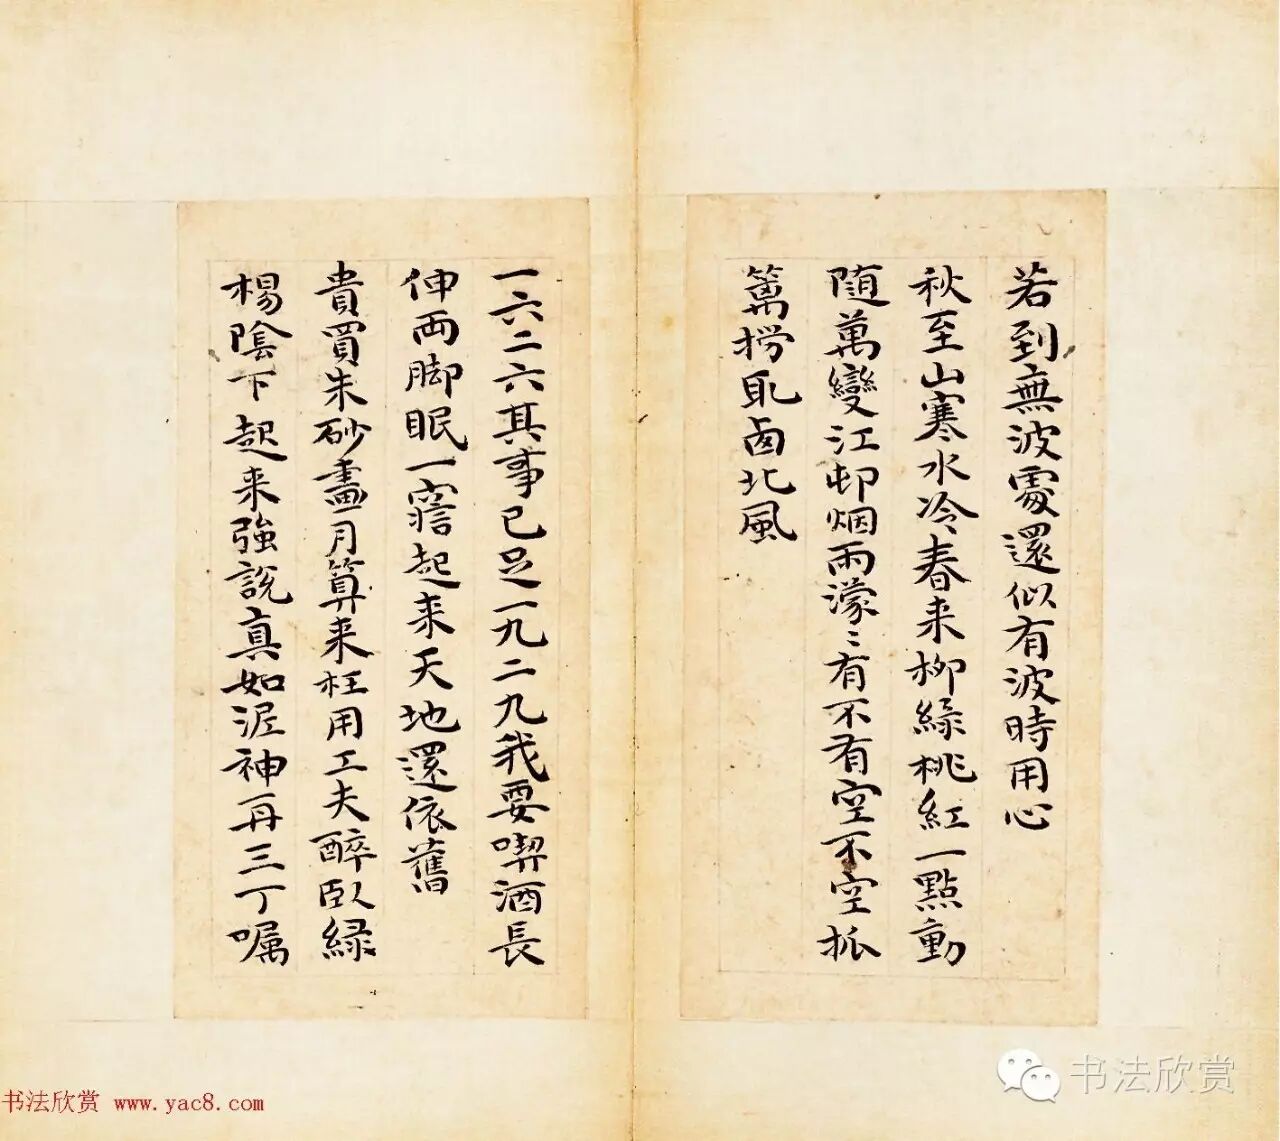 若到無波處還似有波時用心
秋至山寒水冷春来柳綠桃紅一點動
隨萬變江邨烟雨濛〻有不有空不空
笊篱撈取西北風
一六二六其事已足一九二九我要喫酒長
伸两脚眠一寤起来天地還依舊
貴買朱砂畫月算来枉用工夫醉臥緑
楊陰下起来強說真如泥神再三丁嘱
书法欣赏
书法欣赏 www.yac8.com